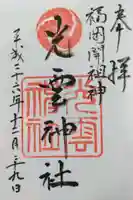 奉拝
福岡開祖神
光雲神社
平成二十六年十二月二九日
光雲神社